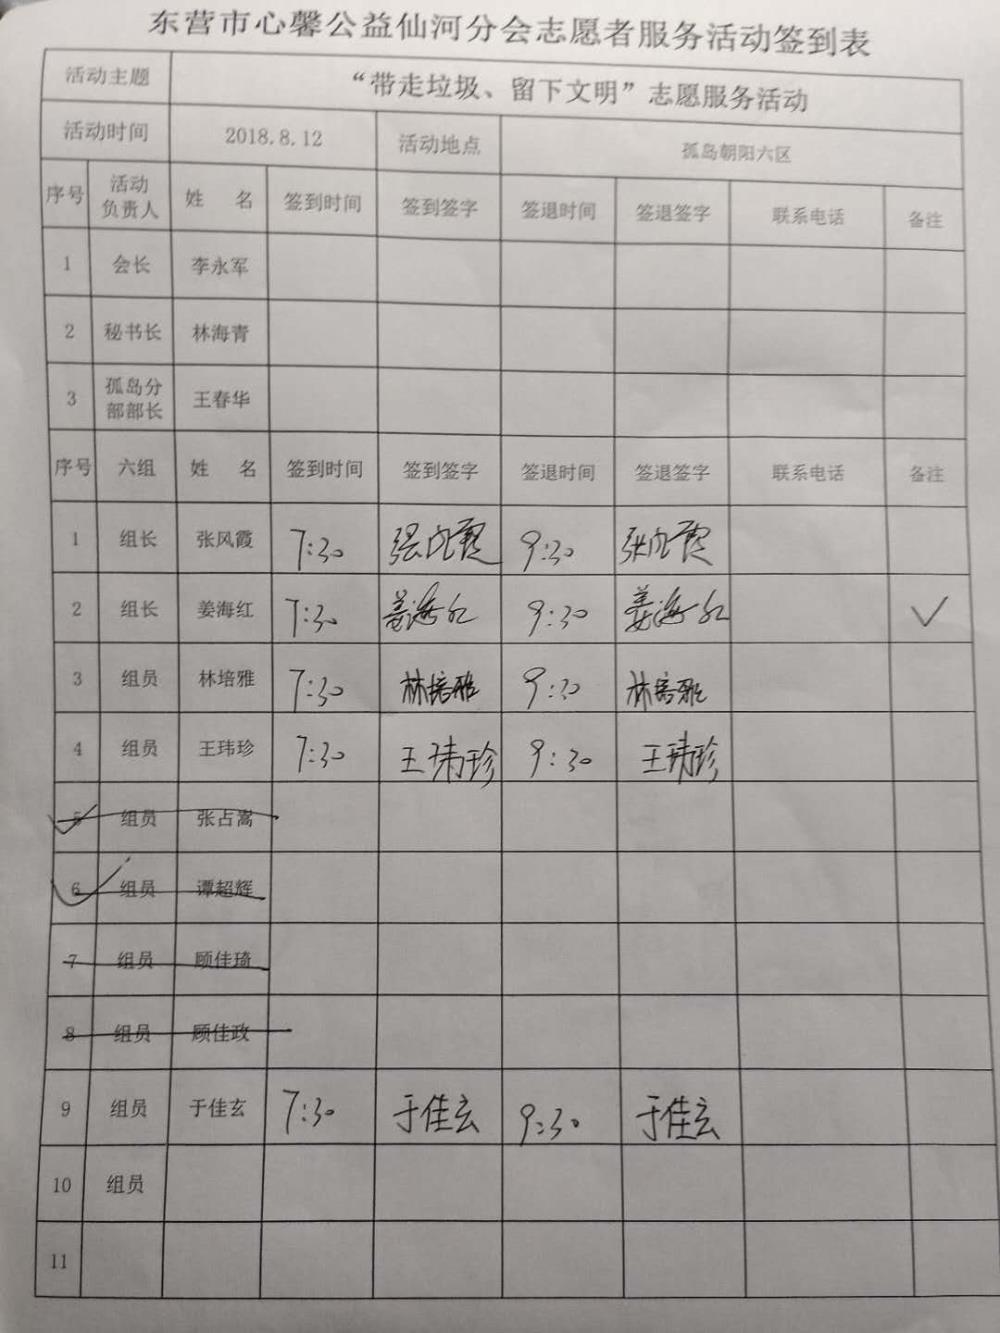 东营市心馨公益仙河分会志愿者服务活动签到表
活动主题 “带走垃圾、留下文明”志愿服务活动
活动时间 2018.8.12 活动地点 孤岛朝阳六区
序号 活动负责人 姓 名 签到时间 签到签字 签退时间 签退签字 联系电话 备注
1 会长 李永军
2 秘书长 林海青
3 孤岛分部部长 王春华
序号 六组 姓 名 签到时间 签到签字 签退时间 签退签字 联系电话 备注
1 组长 张风霞 7:30 张风霞 9:30 张风霞
2 组长 姜海红 7:30 姜海红 9:30 姜海红 ✓
3 组员 林培雅 7:30 林培雅 9:30 林培雅
4 组员 王玮珍 7:30 王玮珍 9:30 王玮珍
5 组员 张占嵩
6 组员 谭超辉
7 组员 顾佳琦
8 组员 顾佳政
9 组员 于佳玄 7:30 于佳玄 9:30 于佳玄
10 组员
11